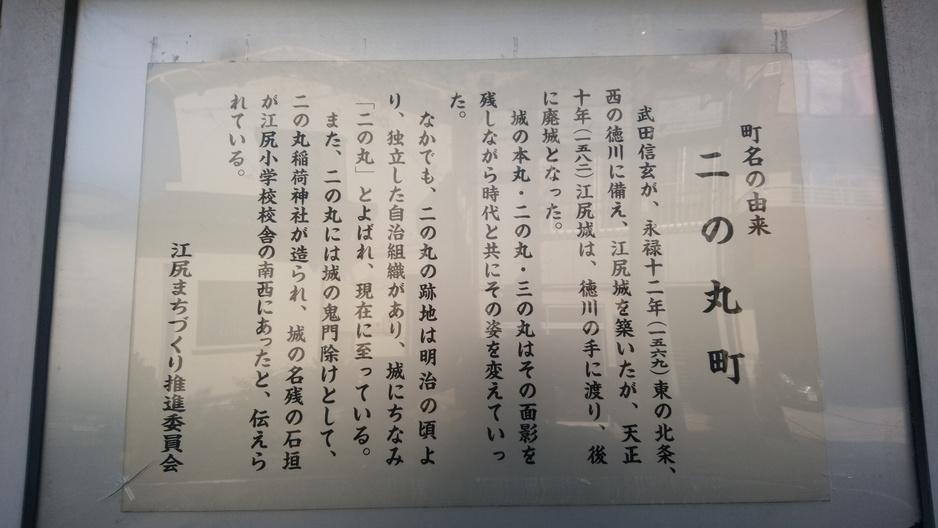 町名の由来
二の丸町
武田信玄が、永禄十二年(一五六九)東の北条、
西の徳川に備え、江尻城を築いたが、天正
十年(一五八二)江尻城は、徳川の手に渡り、後
に廃城となった。
城の本丸・二の丸・三の丸はその面影を
残しながら時代と共にその姿を変えていっ
た。
なかでも、二の丸の跡地は明治の頃よ
り、独立した自治組織があり、城にちなみ
「二の丸」とよばれ、現在に至っている。
また、二の丸には城の鬼門除けとして、
二の丸稲荷神社が造られ、城の名残の石垣
が江尻小学校校舎の南西にあったと、伝えら
れている。
江尻まちづくり推進委員会